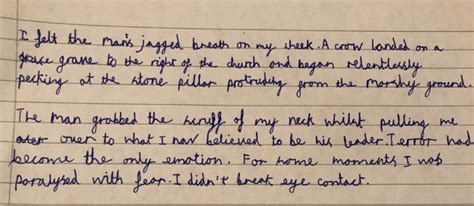 I felt the man's jagged breath on my cheek. A crow landed on a
grave to the right of the church and began relentlessly
pecking at the stone pillar protruding from the marshy ground.
The man grabbed the scruff of my neck whilst pulling me
over to what I now believed to be his leader. Terror had
become the only emotion. For some moments I was
paralysed with fear. I didn't break eye contact.